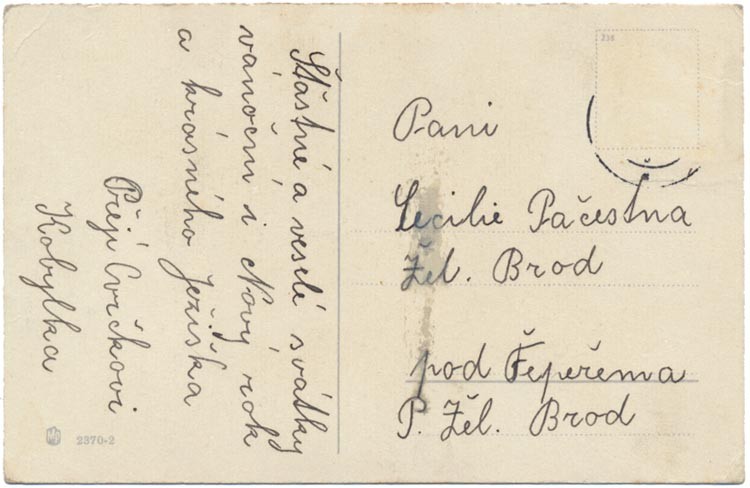 Šťastné a veselé svátky
vánoční i Nový rok
a krásného Ježíška
Přejí Cvičkovi
Kobylka
2370-2
238
Paní
Cecilie Pačestna
Žel. Brod
pod Čepeřema
P. Žel. Brod